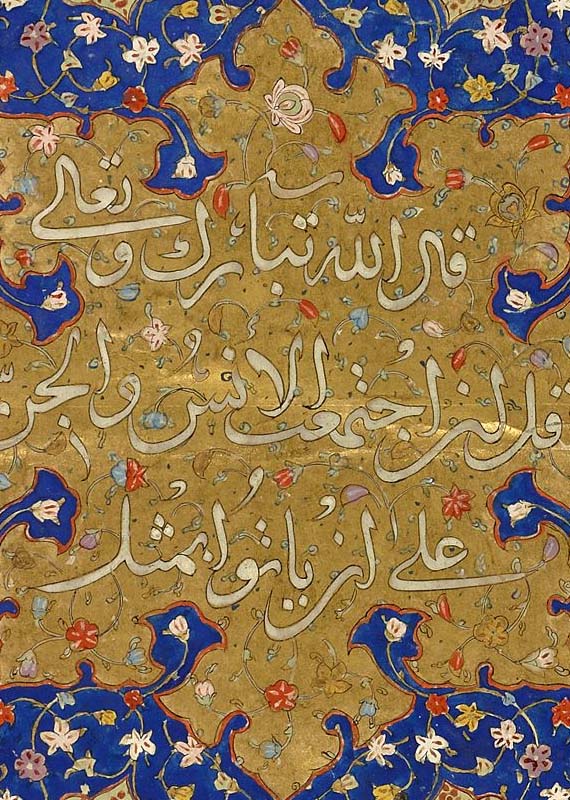 قال الله تبارك وتعالى
قل لئن اجتمعت الإنس والجن
على أن يأتوا بمثل